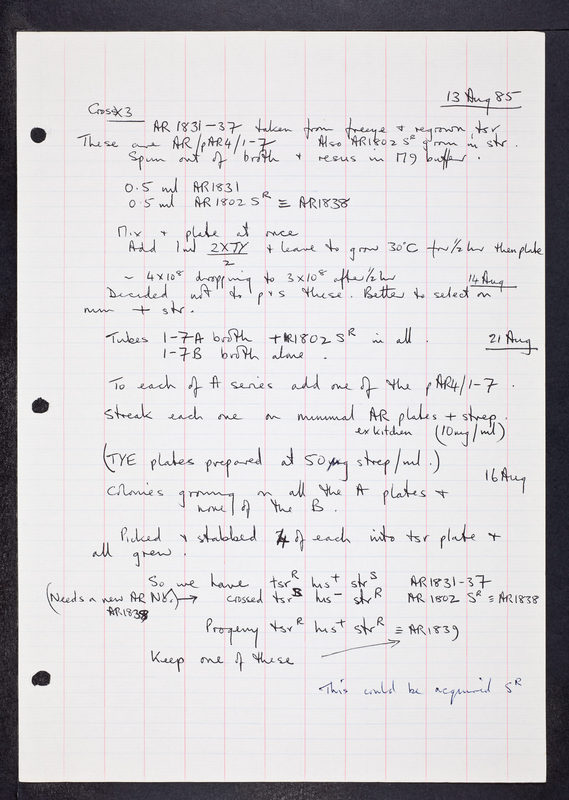 13 Aug 85
Cross X3
AR 1831-37 taken from freeze + regrown tsr
These are AR/pAR4/1-7 Also AR1802 Sᴿ grown in str.
Spun out of broth + resus in M9 buffer.
0.5 ml AR1831
0.5 ml AR1802 Sᴿ ≡ AR1838
Mix + plate at once
Add 1ml 2XTY/2 + leave to grow 30°C for ½ hr then plate
~ 4x10⁸ dropping to 3x10⁸ after ½ hr 14 Aug
Decided not to p+s these. Better to select on
min + str.
Tubes 1-7A broth + AR1802 Sᴿ in all. 21 Aug
1-7B broth alone.
To each of A series add one of the pAR4/1-7.
Streak each one on minimal AR plates + strep.
ex kitchen (10mg/ml)
(TYE plates prepared at 50µg strep/ml.)
16 Aug
Colonies growing on all the A plates +
none of the B.
Picked + stabbed 4 of each into tsr plate +
all grew.
So we have tsrᴿ his⁺ strˢ AR1831-37
(Needs a new AR No.) → crossed tsrˢ his⁻ strᴿ AR 1802 Sᴿ ≡ AR1838
AR1838
Progeny tsrᴿ his⁺ strᴿ ≡ AR1839
Keep one of these
This could be acquired Sᴿ